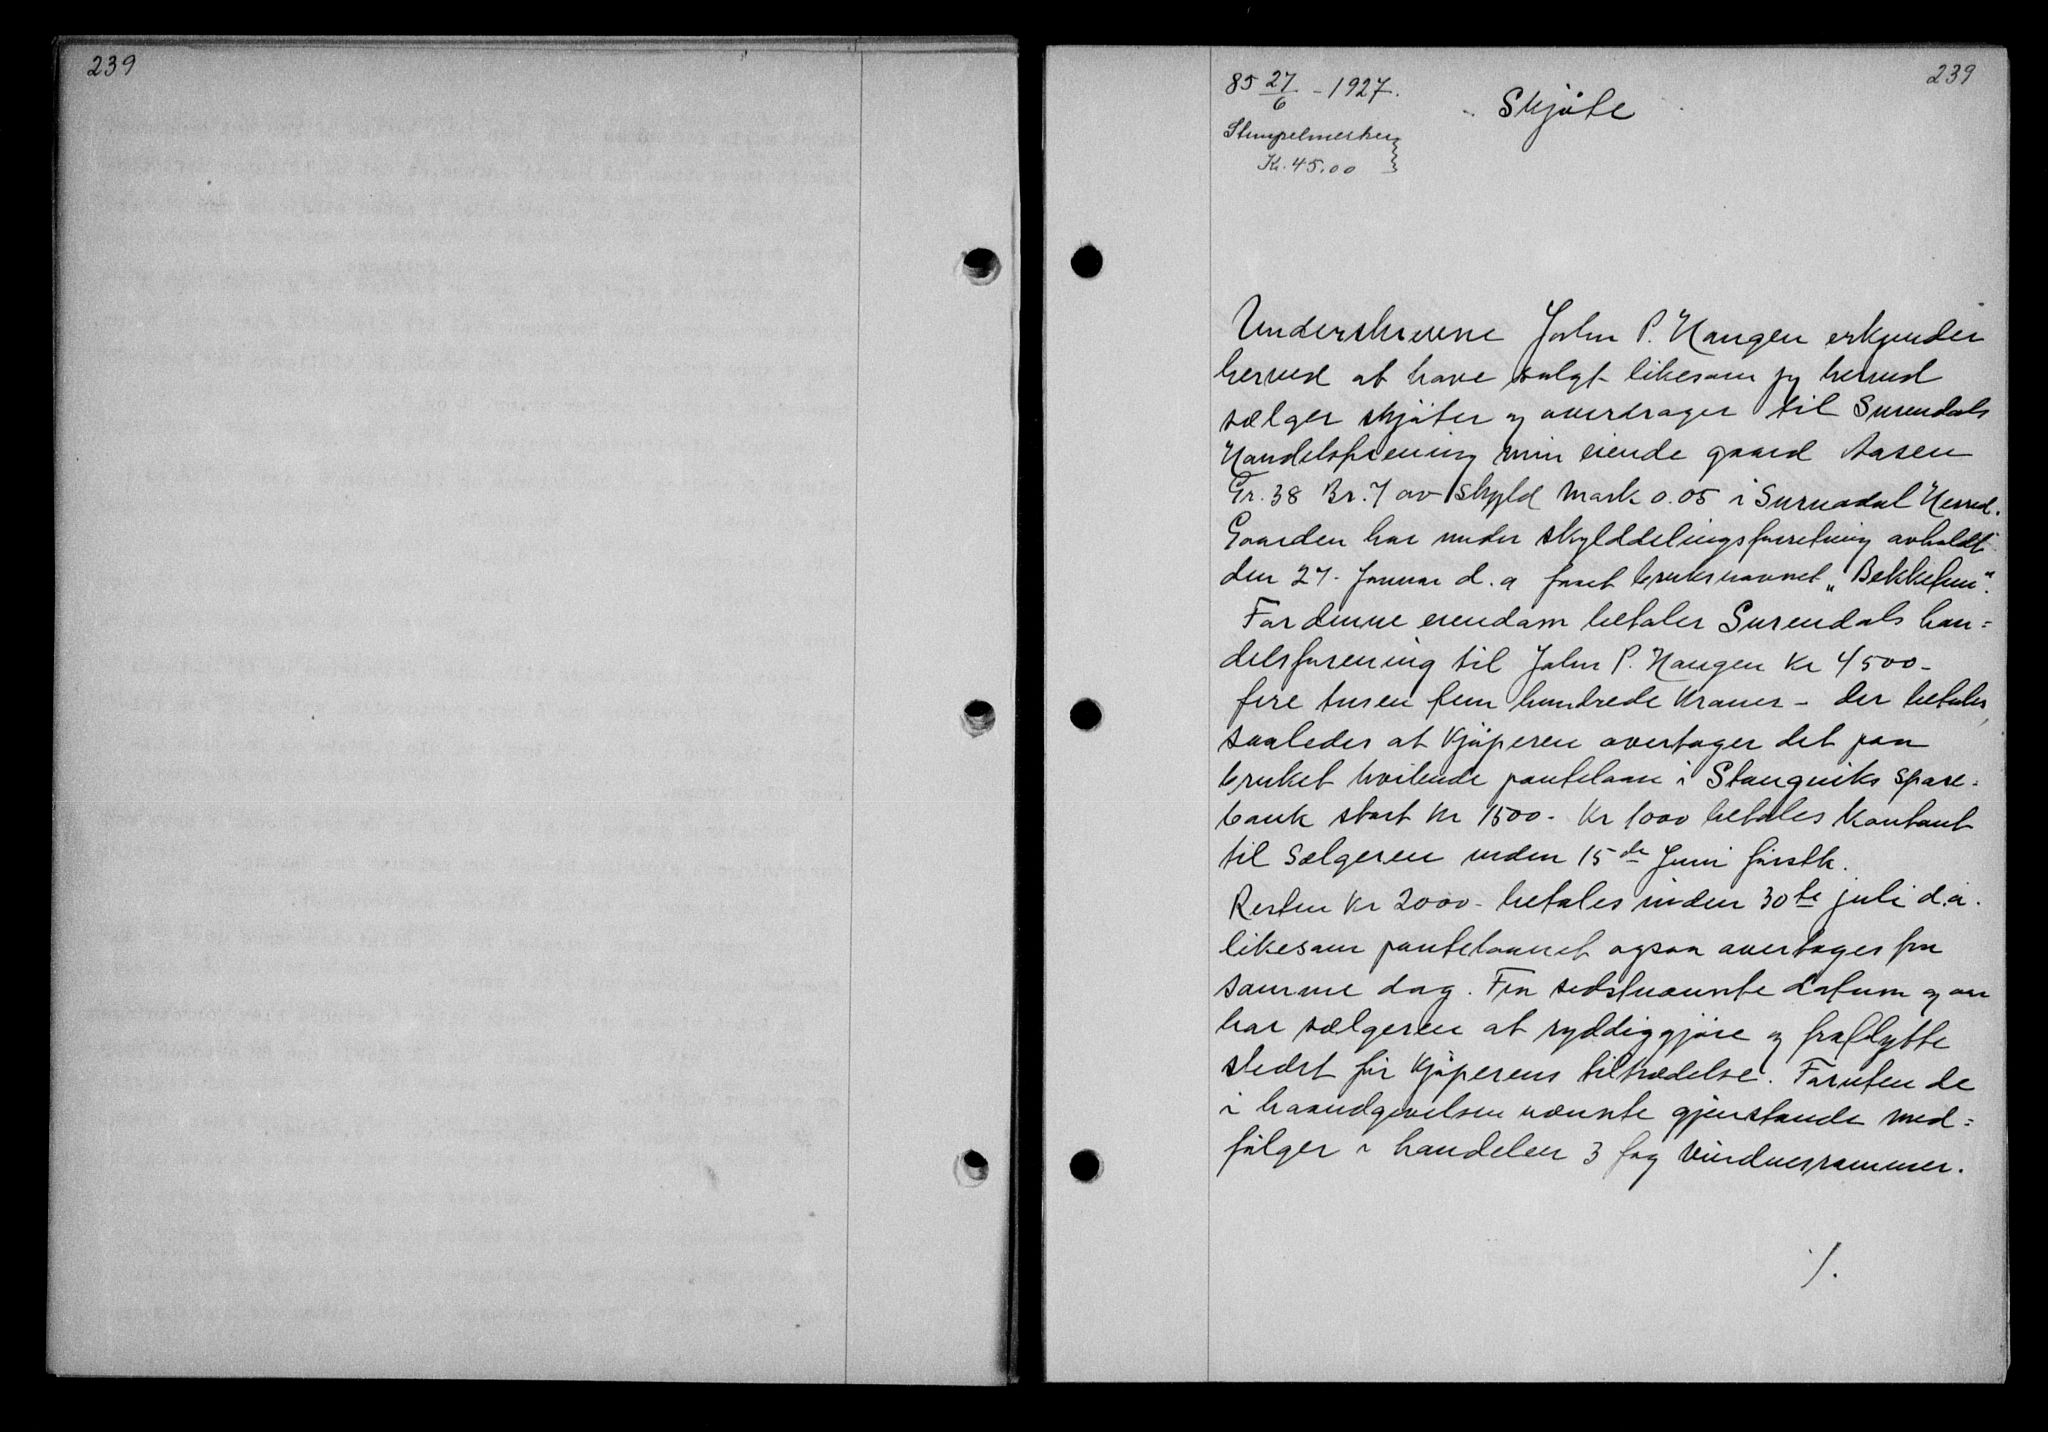 239
239
85 27/6 - 1927.
Skjøte
Stempelmerker
Kr. 45.00
Underskrevne John P. Haugen erkjender
herved at have solgt likesom jeg herved
sælger skjøter og overdrager til Surendals
Handelsforening min eiende gaard Aasen
Gr. 38 Br. 7 av skyld mark 0.05 i Surnadal Herred.
Gaarden har under skylddelingsforretning avholdt
den 27. Januar d.a faaet bruksnavnet "Bekkefun".
For denne eiendom betaler Surendals han=
delsforening til John P. Haugen Kr 4500-
fire tusen fem hundrede Kroner - der betales
saaledes at Kjøperen overtager det paa
bruket hvilende pantelaan i Stangviks spare=
bank stort Kr 1500- Kr 1000 betales Kontant
til Sælgeren inden 15de Juni førstk.
Resten Kr 2000- betales inden 30te juli d.a.
likesom pantelaanet ogsaa overtages fra
samme dag. Fra sidstnævnte datum og an
har sælgeren at ryddiggjøre og fraflytte
stedet før Kjøperens tiltrædelse. Foruten de
i haandgivelsen nævnte gjenstande med=
følger i handelen 3 fag Vinduesrammer.
/.